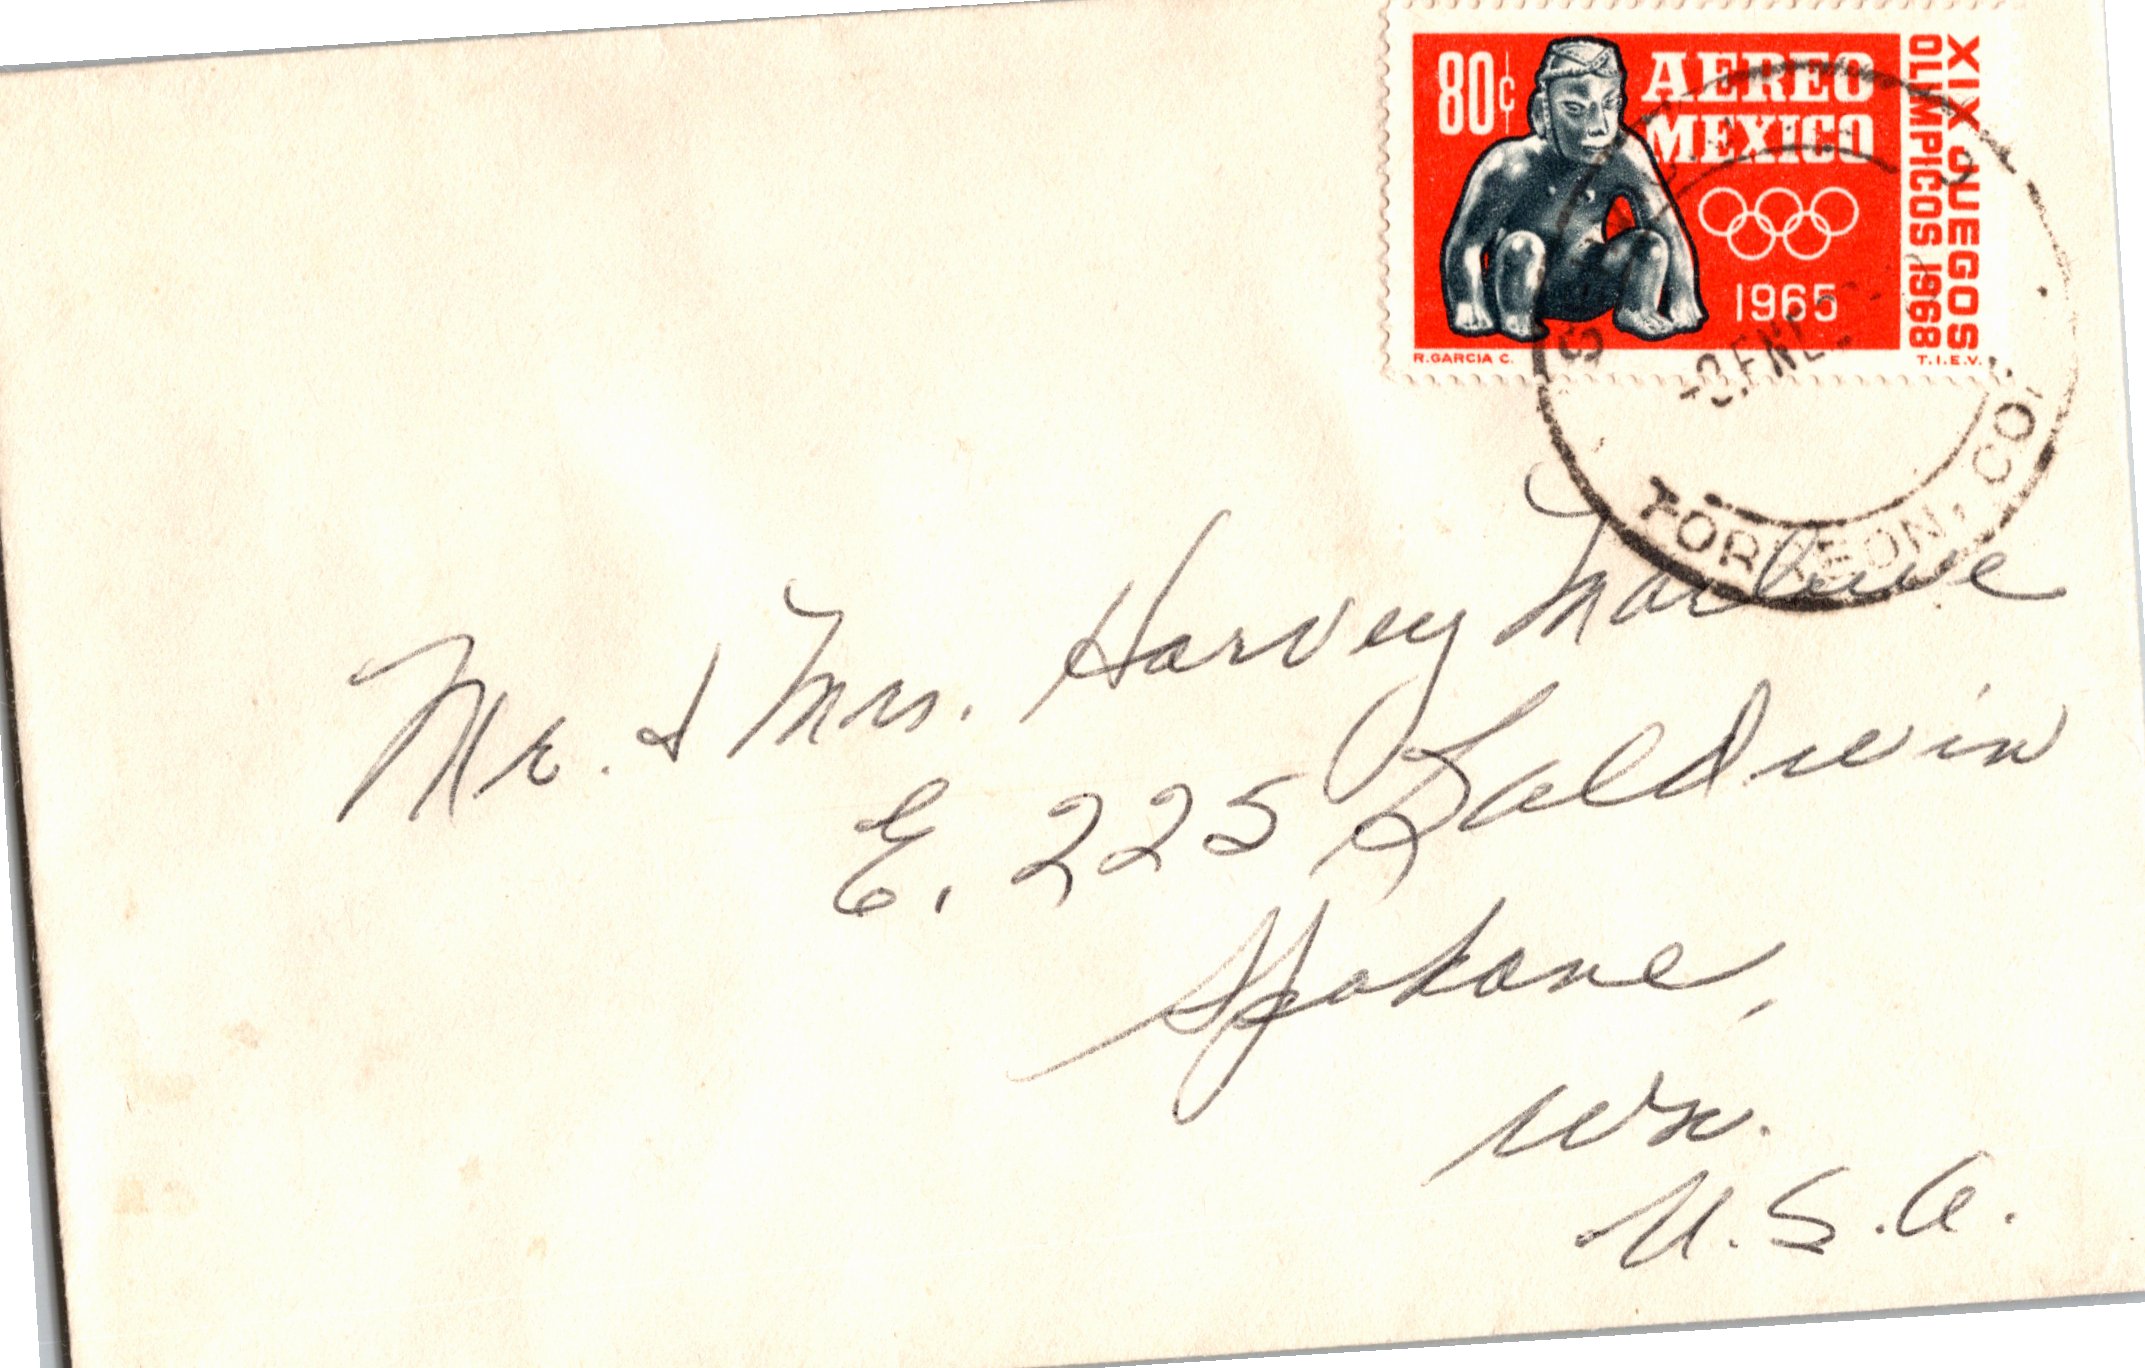 80¢ AEREO
MEXICO
1965
XIX JUEGOS
OLIMPICOS 1968
R. GARCIA C.
T.I.E.V.
ENE
TORREON, CO
Mr. & Mrs. Harvey
E. 225 Baldwin
Spokane,
Wn.
U.S.A.